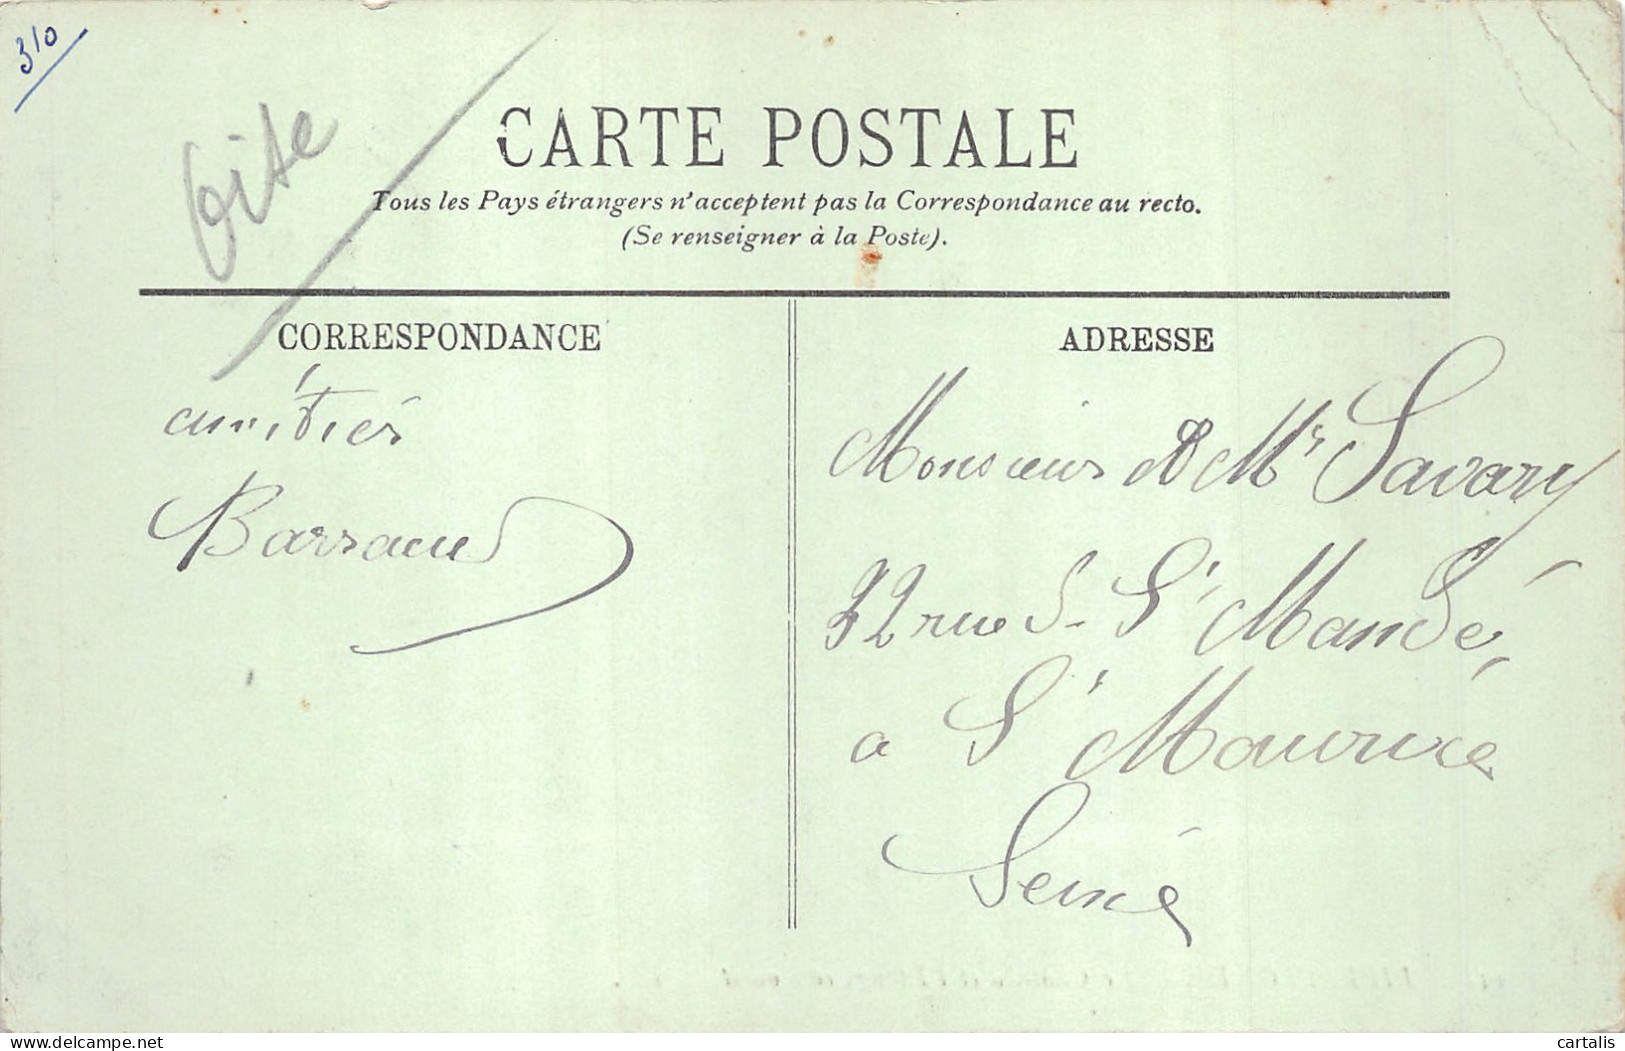 310
CARTE POSTALE
Tous les Pays étrangers n'acceptent pas la Correspondance au recto.
(Se renseigner à la Poste).
CORRESPONDANCE
amitiés
Barraud
ADRESSE
Monsieur & Mr Savary
32 rue de St Mandé,
a St Maurice
Seine
delcampe.net
cartalis